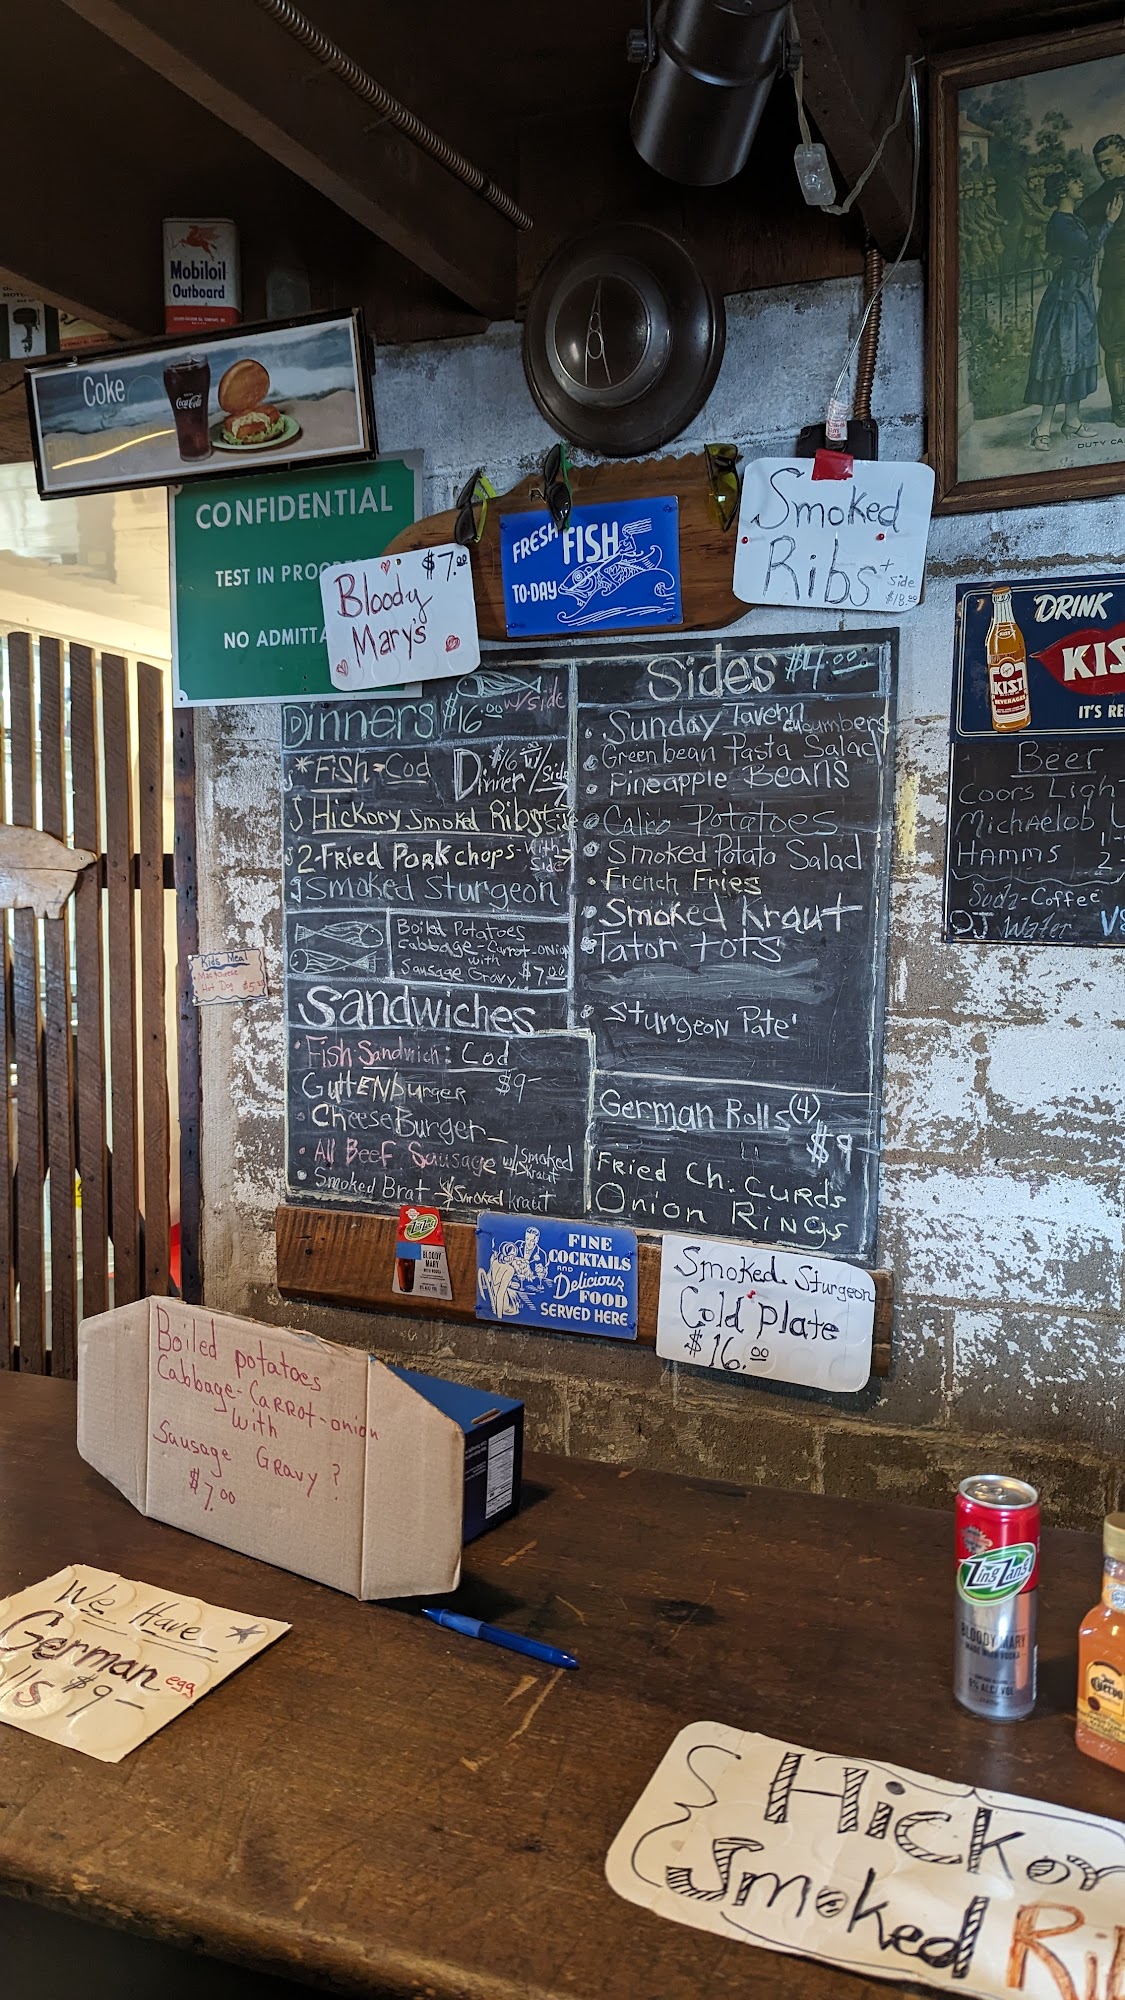 Mobiloil
Outboard
Coke
Coca-Cola
CONFIDENTIAL
TEST IN PROG
NO ADMITTA
Bloody $7.00
Mary's
FRESH FISH
TO-DAY
Smoked
Ribs + side
$18.00
DUTY CA
DRINK
KIS
KIST
BEVERAGES
IT'S RE
Dinners $16.00 w/side
*Fish-Cod $16.00 w/
Dinner/Side
Hickory Smoked Ribs + side
2-Fried Porkchops-with
side
Smoked Sturgeon
Boiled Potatoes
Cabbage-Carrot-onion
with
Sausage Gravy $7.00
Sandwiches
Fish Sandwich: Cod
GuttENburger $9-
CheeseBurger-
All Beef Sausage w/smoked
kraut
Smoked Brat w/smoked kraut
Sides $4.00
Sunday Tavern
cucumbers
Greenbean Pasta Salad
Pineapple Beans
Calico Potatoes
Smoked Potato Salad
French Fries
Smoked Kraut
Tator tots
Sturgeon Pate'
German Rolls (4)
$9
Fried Ch. Curds
Onion Rings
Beer
Coors Ligh
Michaelob U
HAMMS
Soda-Coffee
OJ Water V8
Kids Meal
Hot Dog $5.00
Zing Zang
BLOODY
MARY
FINE
COCKTAILS
AND
Delicious
FOOD
SERVED HERE
Smoked Sturgeon
Cold Plate
$16.00
Boiled potatoes
Cabbage-Carrot-onion
with
Sausage Gravy?
$7.00
We Have
German egg
lls $9-
Zing Zang
BLOODY MARY
MADE WITH VODKA
9% ALC/VOL
Jose
Cuervo
Hickor
Smoked Ri